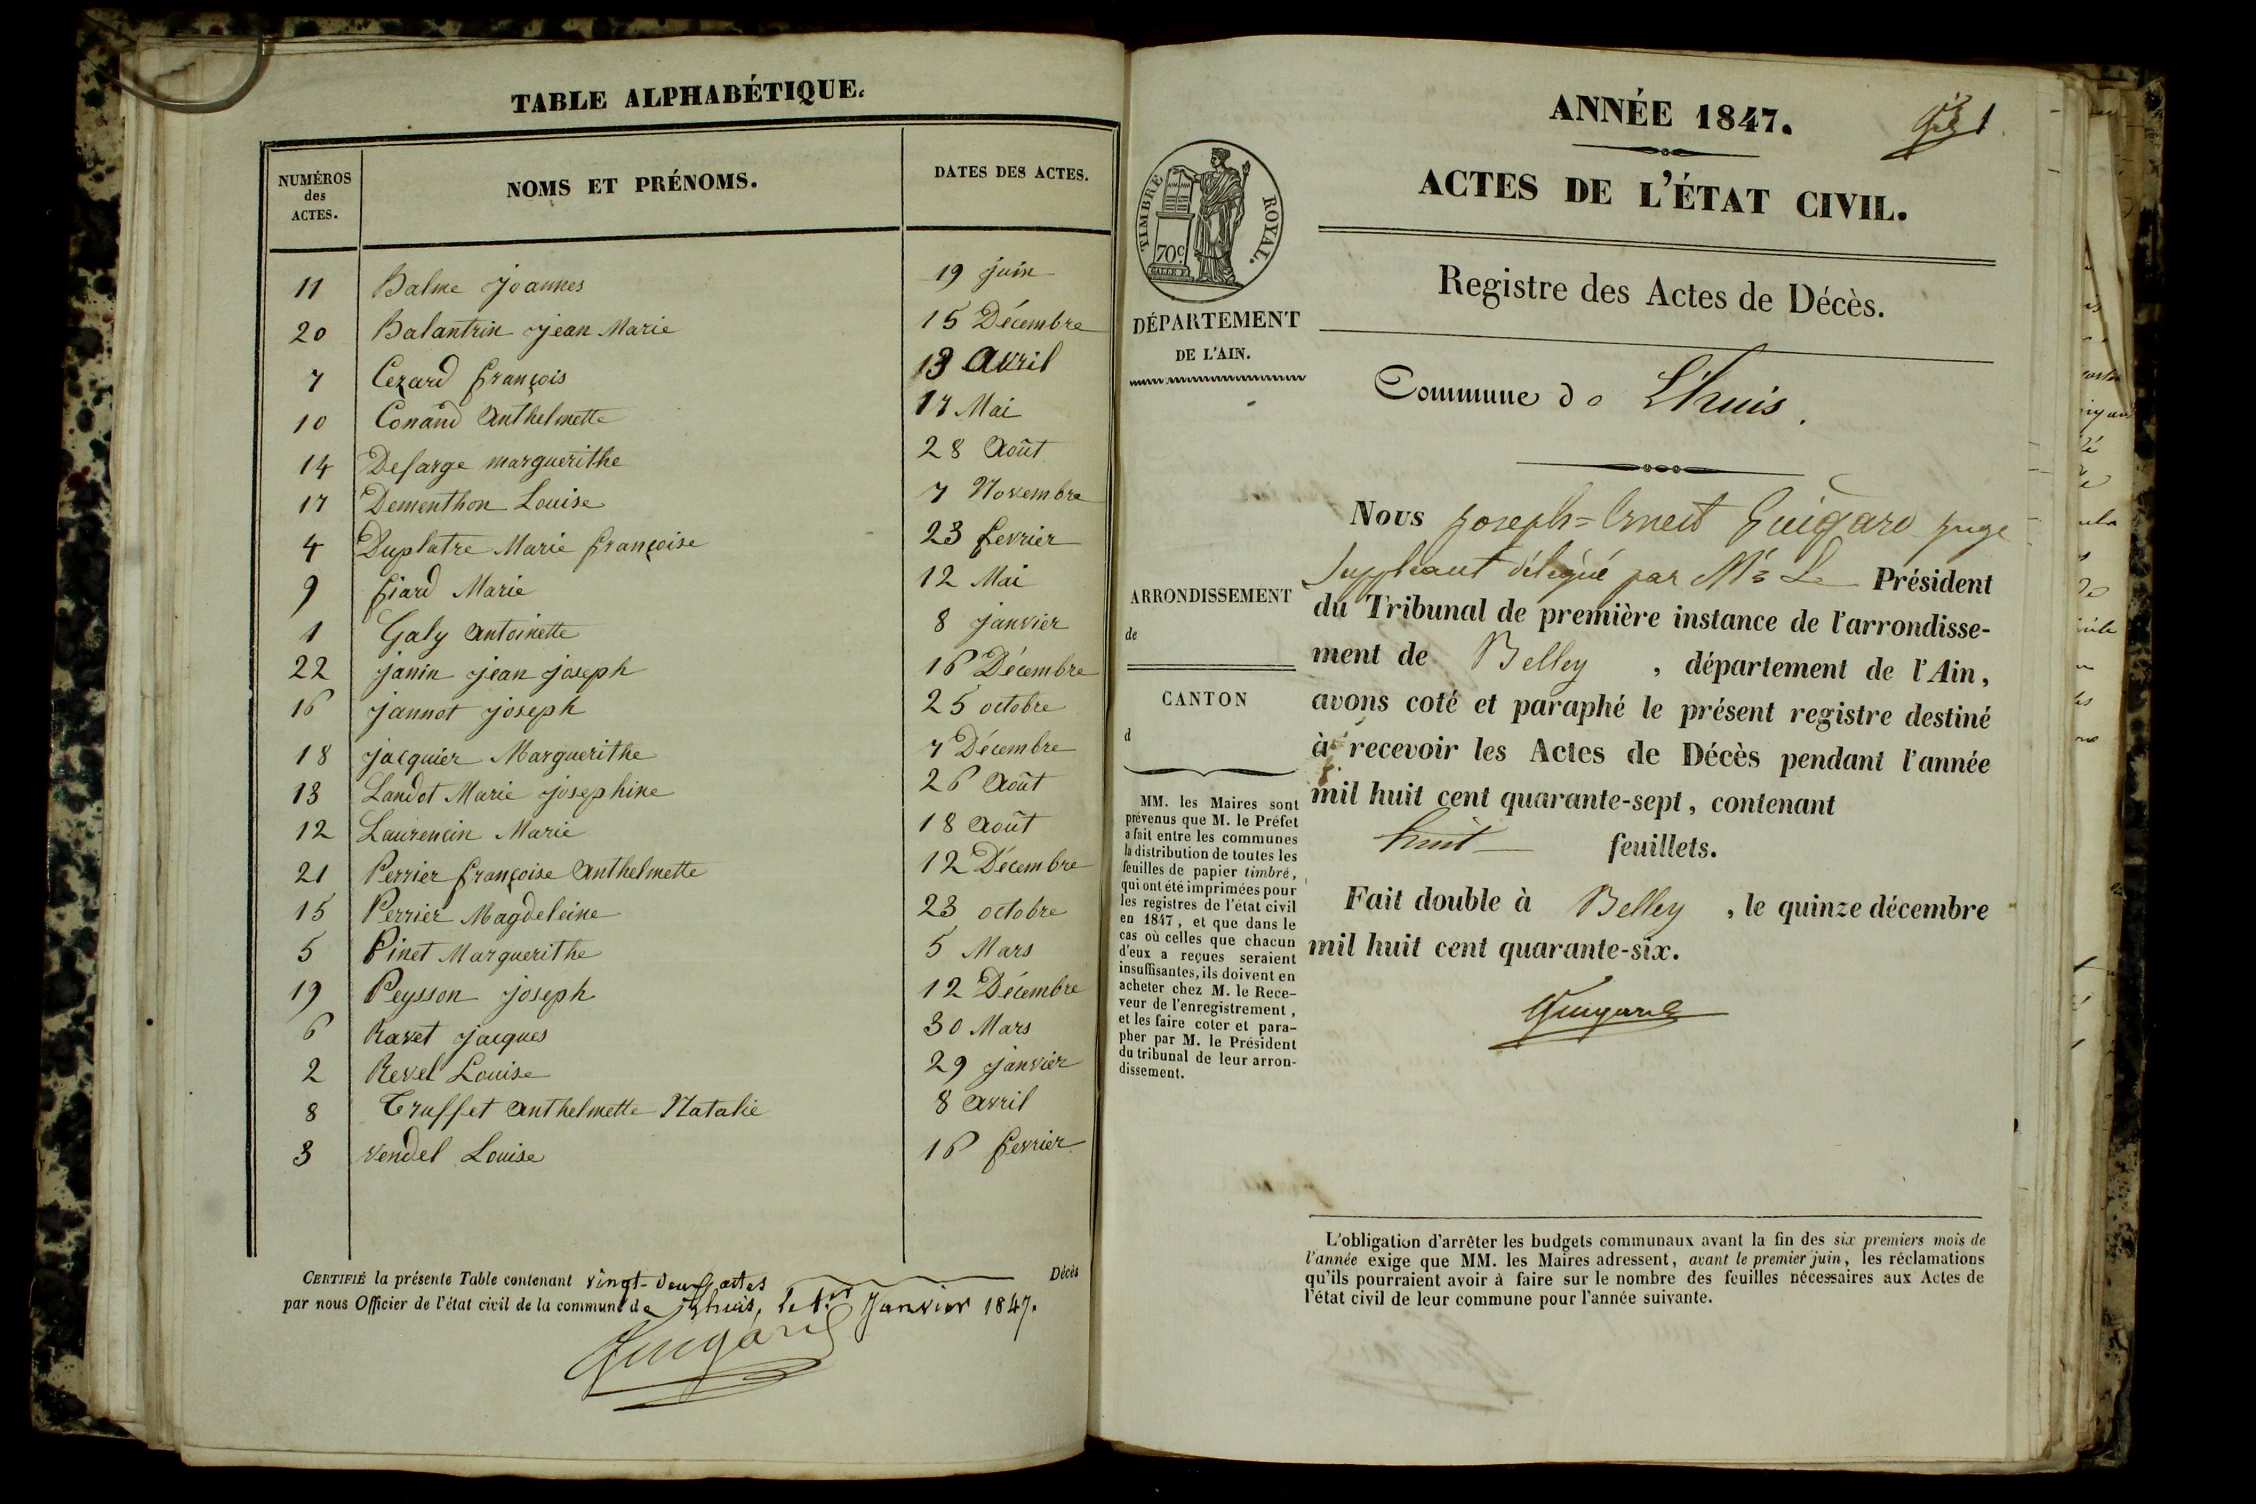 TABLE ALPHABÉTIQUE.
NUMÉROS
des
ACTES.
NOMS ET PRÉNOMS.
DATES DES ACTES.
11 Balme Joannes 19 juin
20 Balantrin Jean Marie 15 Décembre
7 Cezard françois 13 Avril
10 Conand Anthelmette 17 Mai
14 Defarge marguerithe 28 Août
17 Dementhon Louise 7 Novembre
4 Duplatre Marie françoise 23 fevrier
9 fiard Marie 12 Mai
1 Galy Antoinette 8 janvier
22 janin jean joseph 16 Décembre
16 jannot joseph 25 octobre
18 jacquier Marguerithe 7 Décembre
13 Landot Marie josephine 26 Août
12 Laurencin Marie 18 Août
21 Perrier françoise Anthelmette 12 Décembre
15 Perrier Magdeleine 23 octobre
5 Pinet Marguerithe 5 Mars
19 Peysson joseph 12 Décembre
6 Ravet jacques 30 Mars
2 Revel Louise 29 janvier
8 Truffet Anthelmette Natalie 8 Avril
3 vendel Louise 16 fevrier
CERTIFIÉ la présente Table contenant vingt-deux actes Décès
par nous Officier de l'état civil de la commune de Lhuis, le 1.er Janvier 1847.
Guigard
1
ANNÉE 1847.
ACTES DE L'ÉTAT CIVIL.
TIMBRE ROYAL.
70c
Registre des Actes de Décès.
DÉPARTEMENT
DE L'AIN.
Commune de L'huis.
Nous joseph=Ernest Guigard juge
Suppleant délégué par Mr Le Président
du Tribunal de première instance de l'arrondisse-
ment de Belley, département de l'Ain,
avons coté et paraphé le présent registre destiné
à recevoir les Actes de Décès pendant l'année
mil huit cent quarante-sept, contenant
huit feuillets.
Fait double à Belley, le quinze décembre
mil huit cent quarante-six.
Guigard
ARRONDISSEMENT
de
CANTON
d
MM. les Maires sont
prévenus que M. le Préfet
a fait entre les communes
la distribution de toutes les
feuilles de papier timbré,
qui ont été imprimées pour
les registres de l'état civil
en 1847, et que dans le
cas où celles que chacun
d'eux a reçues seraient
insuffisantes, ils doivent en
acheter chez M. le Rece-
veur de l'enregistrement,
et les faire coter et para-
pher par M. le Président
du tribunal de leur arron-
dissement.
L'obligation d'arrêter les budgets communaux avant la fin des six premiers mois de
l'année exige que MM. les Maires adressent, avant le premier juin, les réclamations
qu'ils pourraient avoir à faire sur le nombre des feuilles nécessaires aux Actes de
l'état civil de leur commune pour l'année suivante.